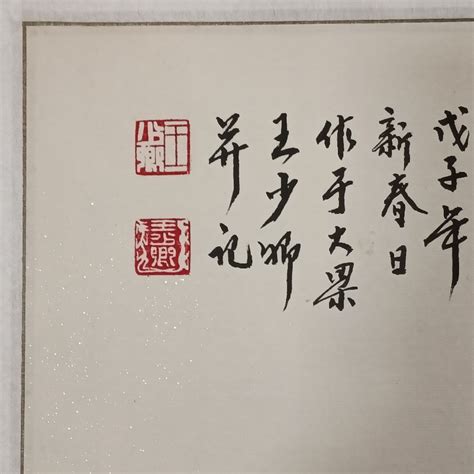 戊子年
新春日
作于大梁
王少卿
并记
王少卿